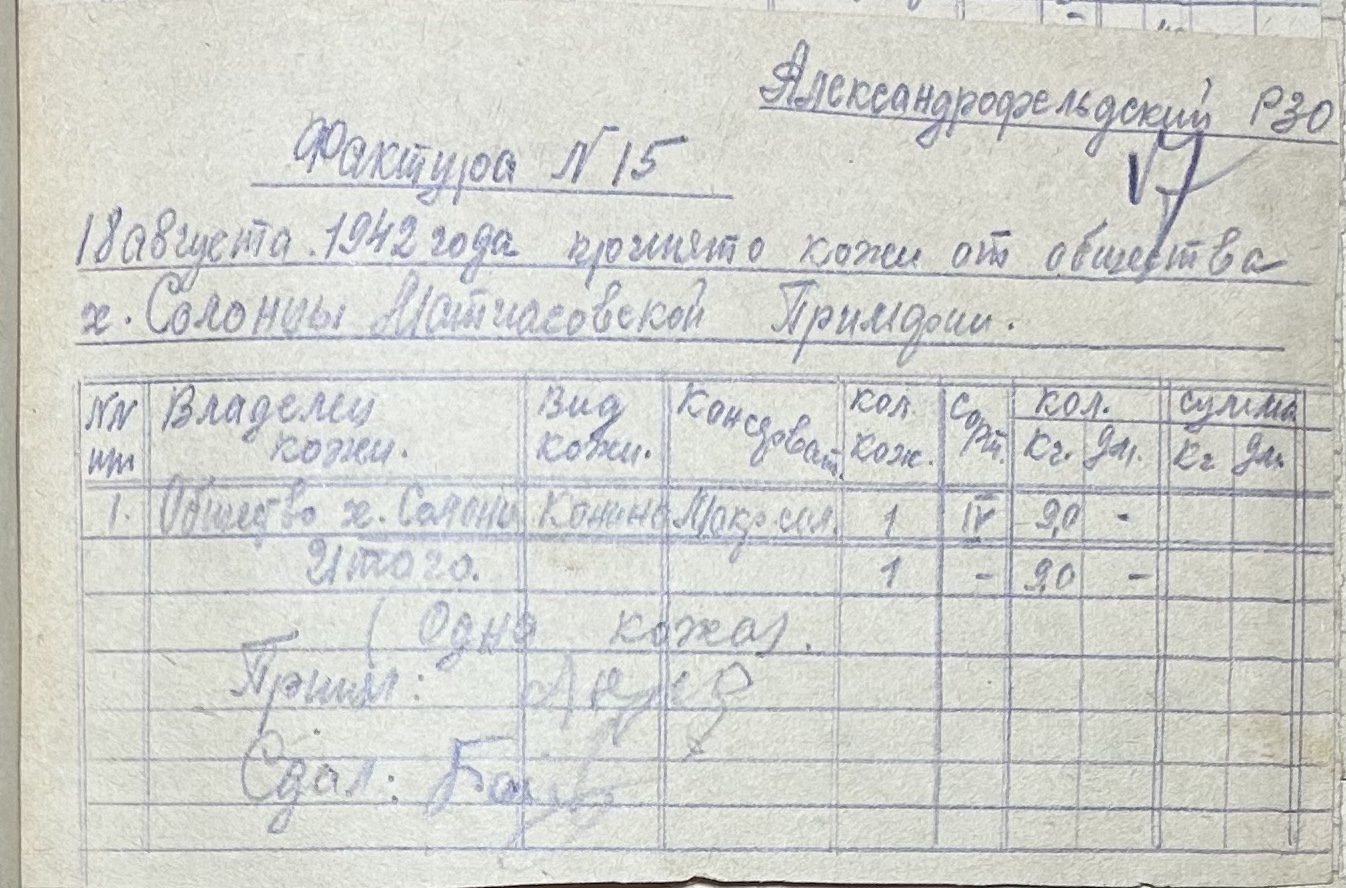 Александрофельдский РЗО
Фактура N 15
18 августа 1942 года принято кожи от общества
х. Солонцы Матиасовской Примарии.
NN пп Владелец кожи. Вид кожи. Консерват. кол. кож. сорт. кол. кг. дм. сумма кг дм.
1. Общество х. Солонц Конина Мокр. сол. 1 IV 9,0 -
Итого. 1 - 9,0 -
(Одна кожа).
Принял:
Сдал: